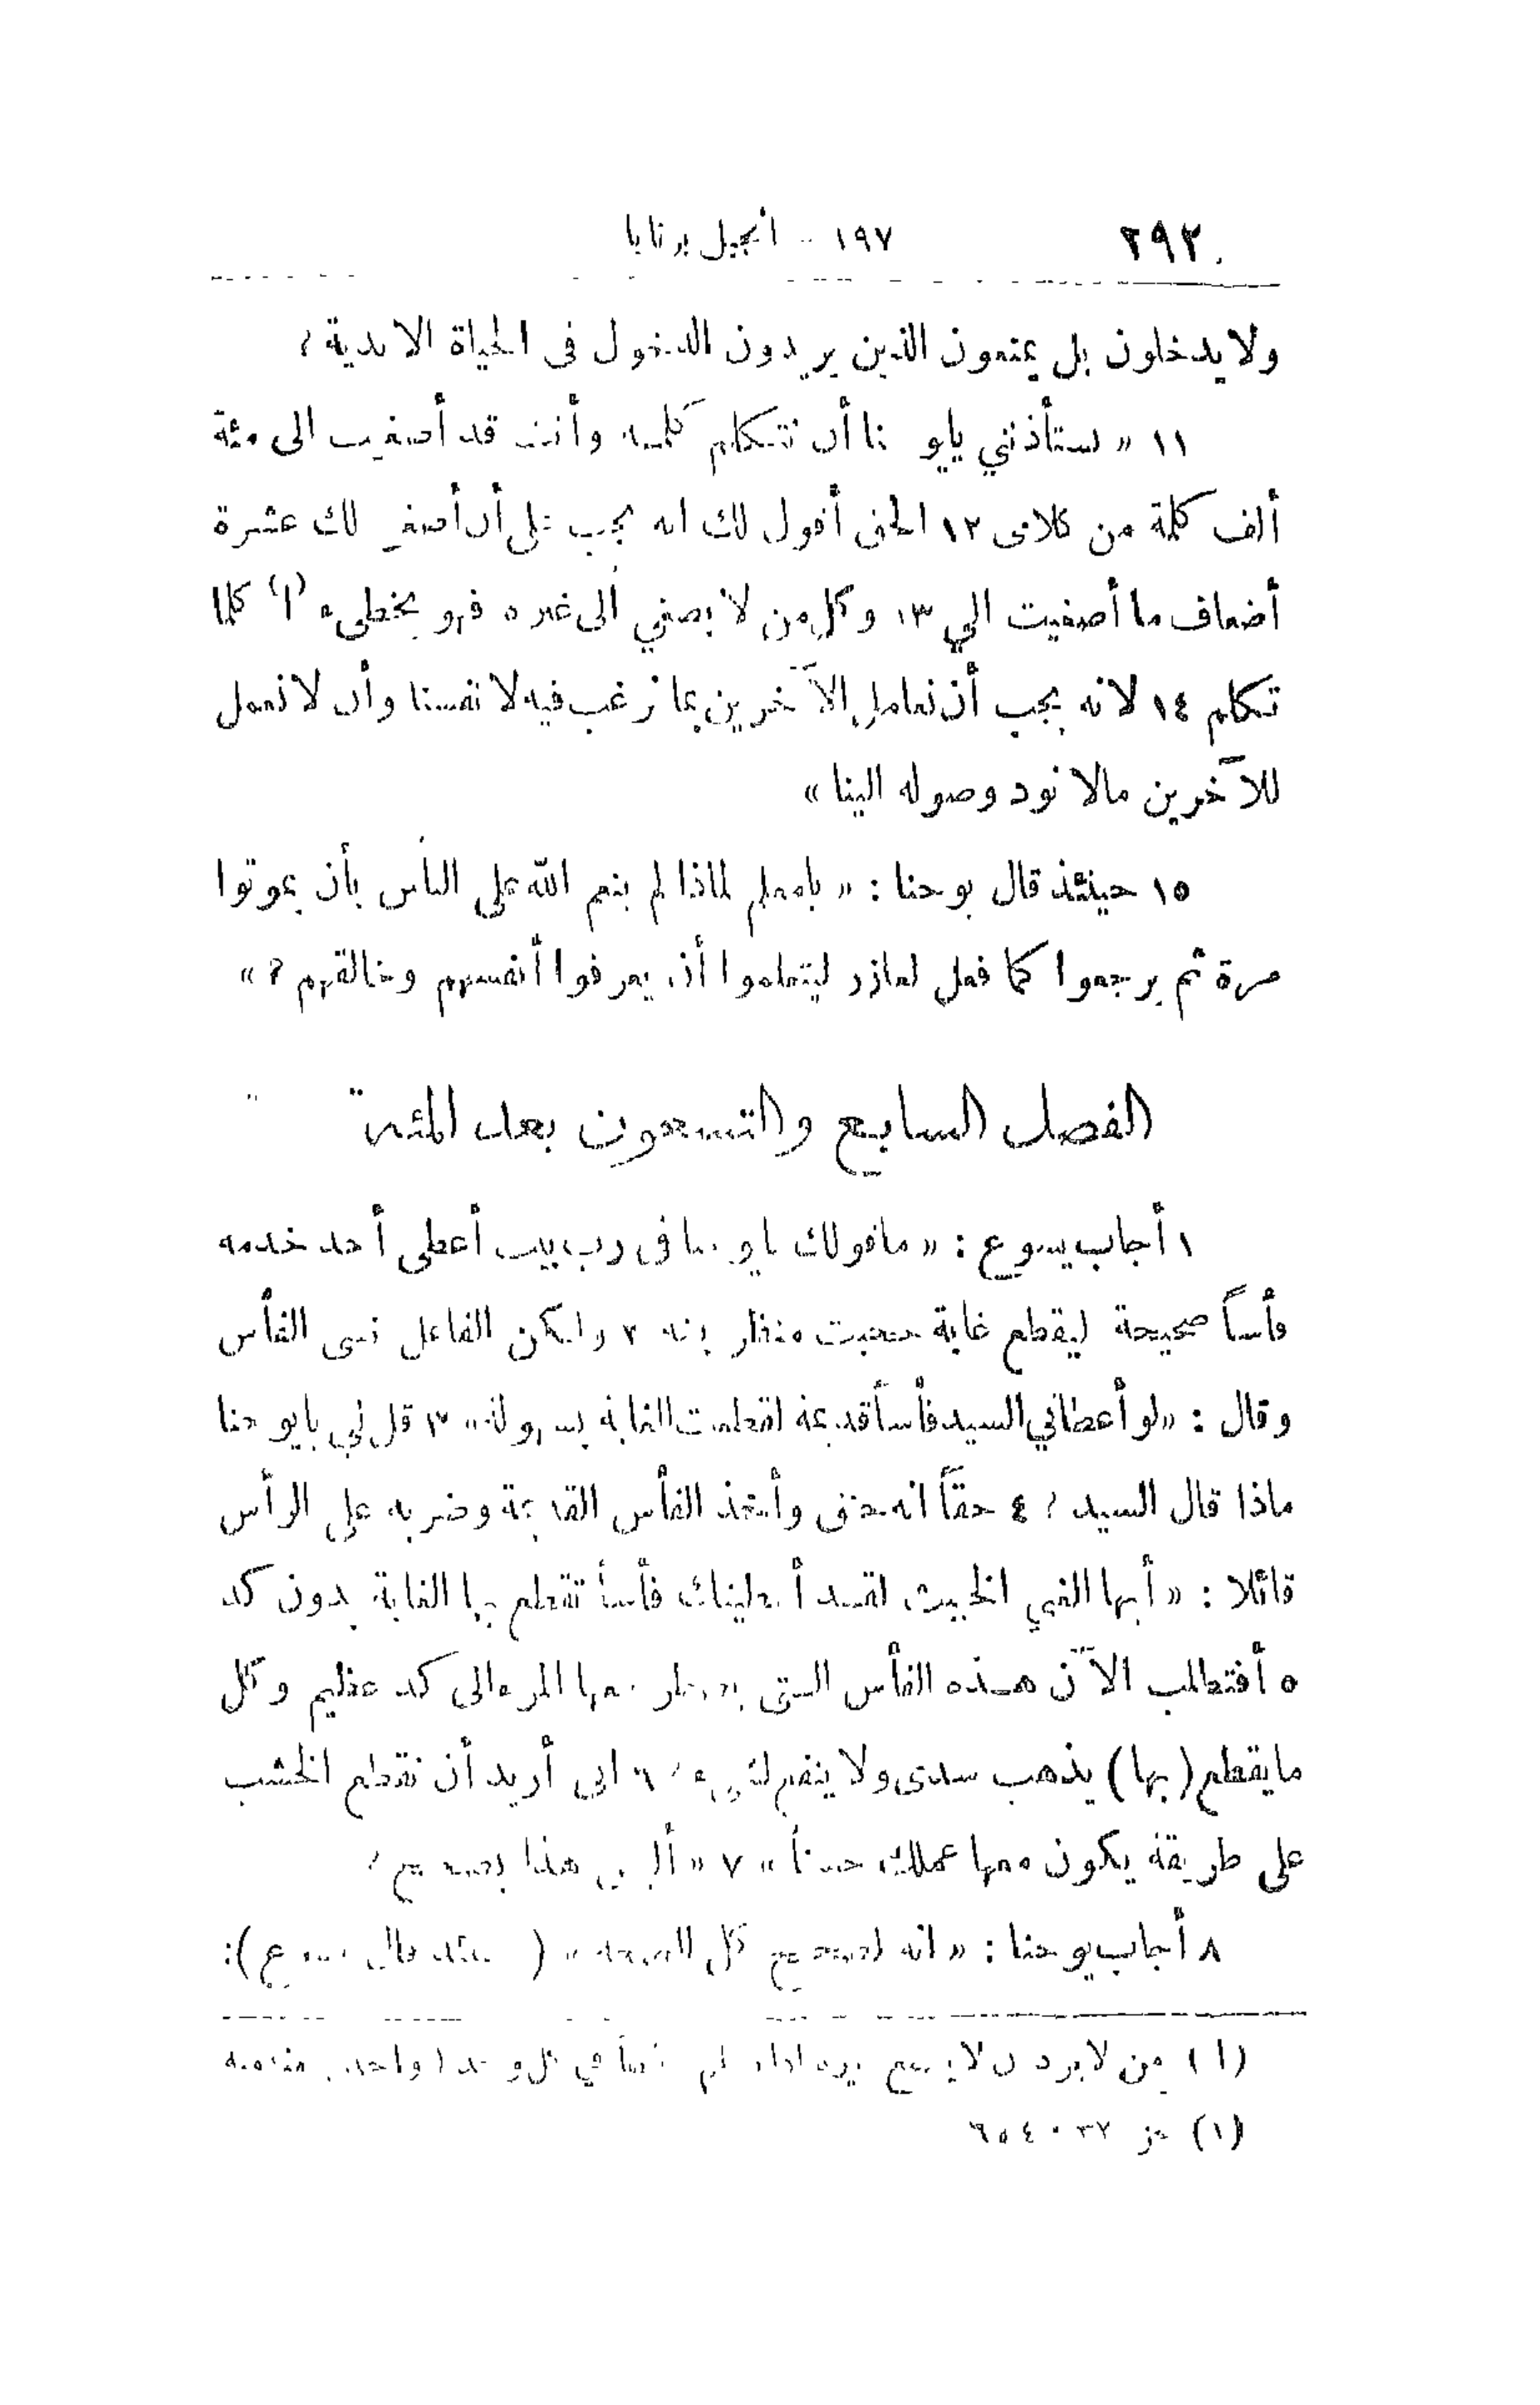 ٢٩٢ ١٩٧ - انجيل برنابا
ولا يدخلون بل يمنعون الذين يريدون الدخول فى الحياة الابدية ؟
١١ « تستأذنني يايوحنا أن تتكلم كلمة وأنت قد أصغيت الى مئة
ألف كلمة من كلامى ١٢ الحق أقول لك انه يجب على أن أصغي لك عشرة
أضعاف ما أصغيت الي ١٣ وكل من لا يصغي الى غيره فهو يخطىء (١) كلما
تكلم ١٤ لانه يجب أن نعامل الآخرين بما نرغب فيه لانفسنا وأن لا نعمل
للآخرين مالا نود وصوله الينا »
١٥ حينئذ قال يوحنا : « يامعلم لماذا لم ينعم الله على الناس بأن يموتوا
مرة ثم يرجعوا كما فعل لعازر ليتعلموا أن يعرفوا أنفسهم وخالقهم ؟ »
الفصل السابع والتسعون بعد المئة
١ أجاب يسوع : « ماقولك يايوحنا فى رب بيت أعطى أحد خدمه
فأساً صحيحة ليقطع غابة حجبت منظر بيته ٢ ولكن الفاعل نسى الفأس
وقال : « لو أعطاني السيد فأساً قديمة لقطعت الغابة بسهولة » ٣ قل لي يايوحنا
ماذا قال السيد ؟ ٤ حقاً انه حنق وأخذ الفأس القديمة وضربه على الرأس
قائلا : « أيها الغبي الخبيث لقد أعطيتك فأساً تقطع بها الغابة بدون كد
٥ أفتطلب الآن هذه الفأس التى يضطر معها المرء الى كد عظيم وكل
مايقطع (بها) يذهب سدى ولا ينفع لشىء ؟ ٦ انى أريد أن تقطع الخشب
على طريقة يكون معها عملك حسناً » ٧ « أليس هذا بصحيح ؟
٨ أجاب يوحنا : « انه لصحيح كل الصحة » ( حينئذ قال يسوع ) :
(١) من لا
(١) حز ٣٧ : ٤ ٥ ٦